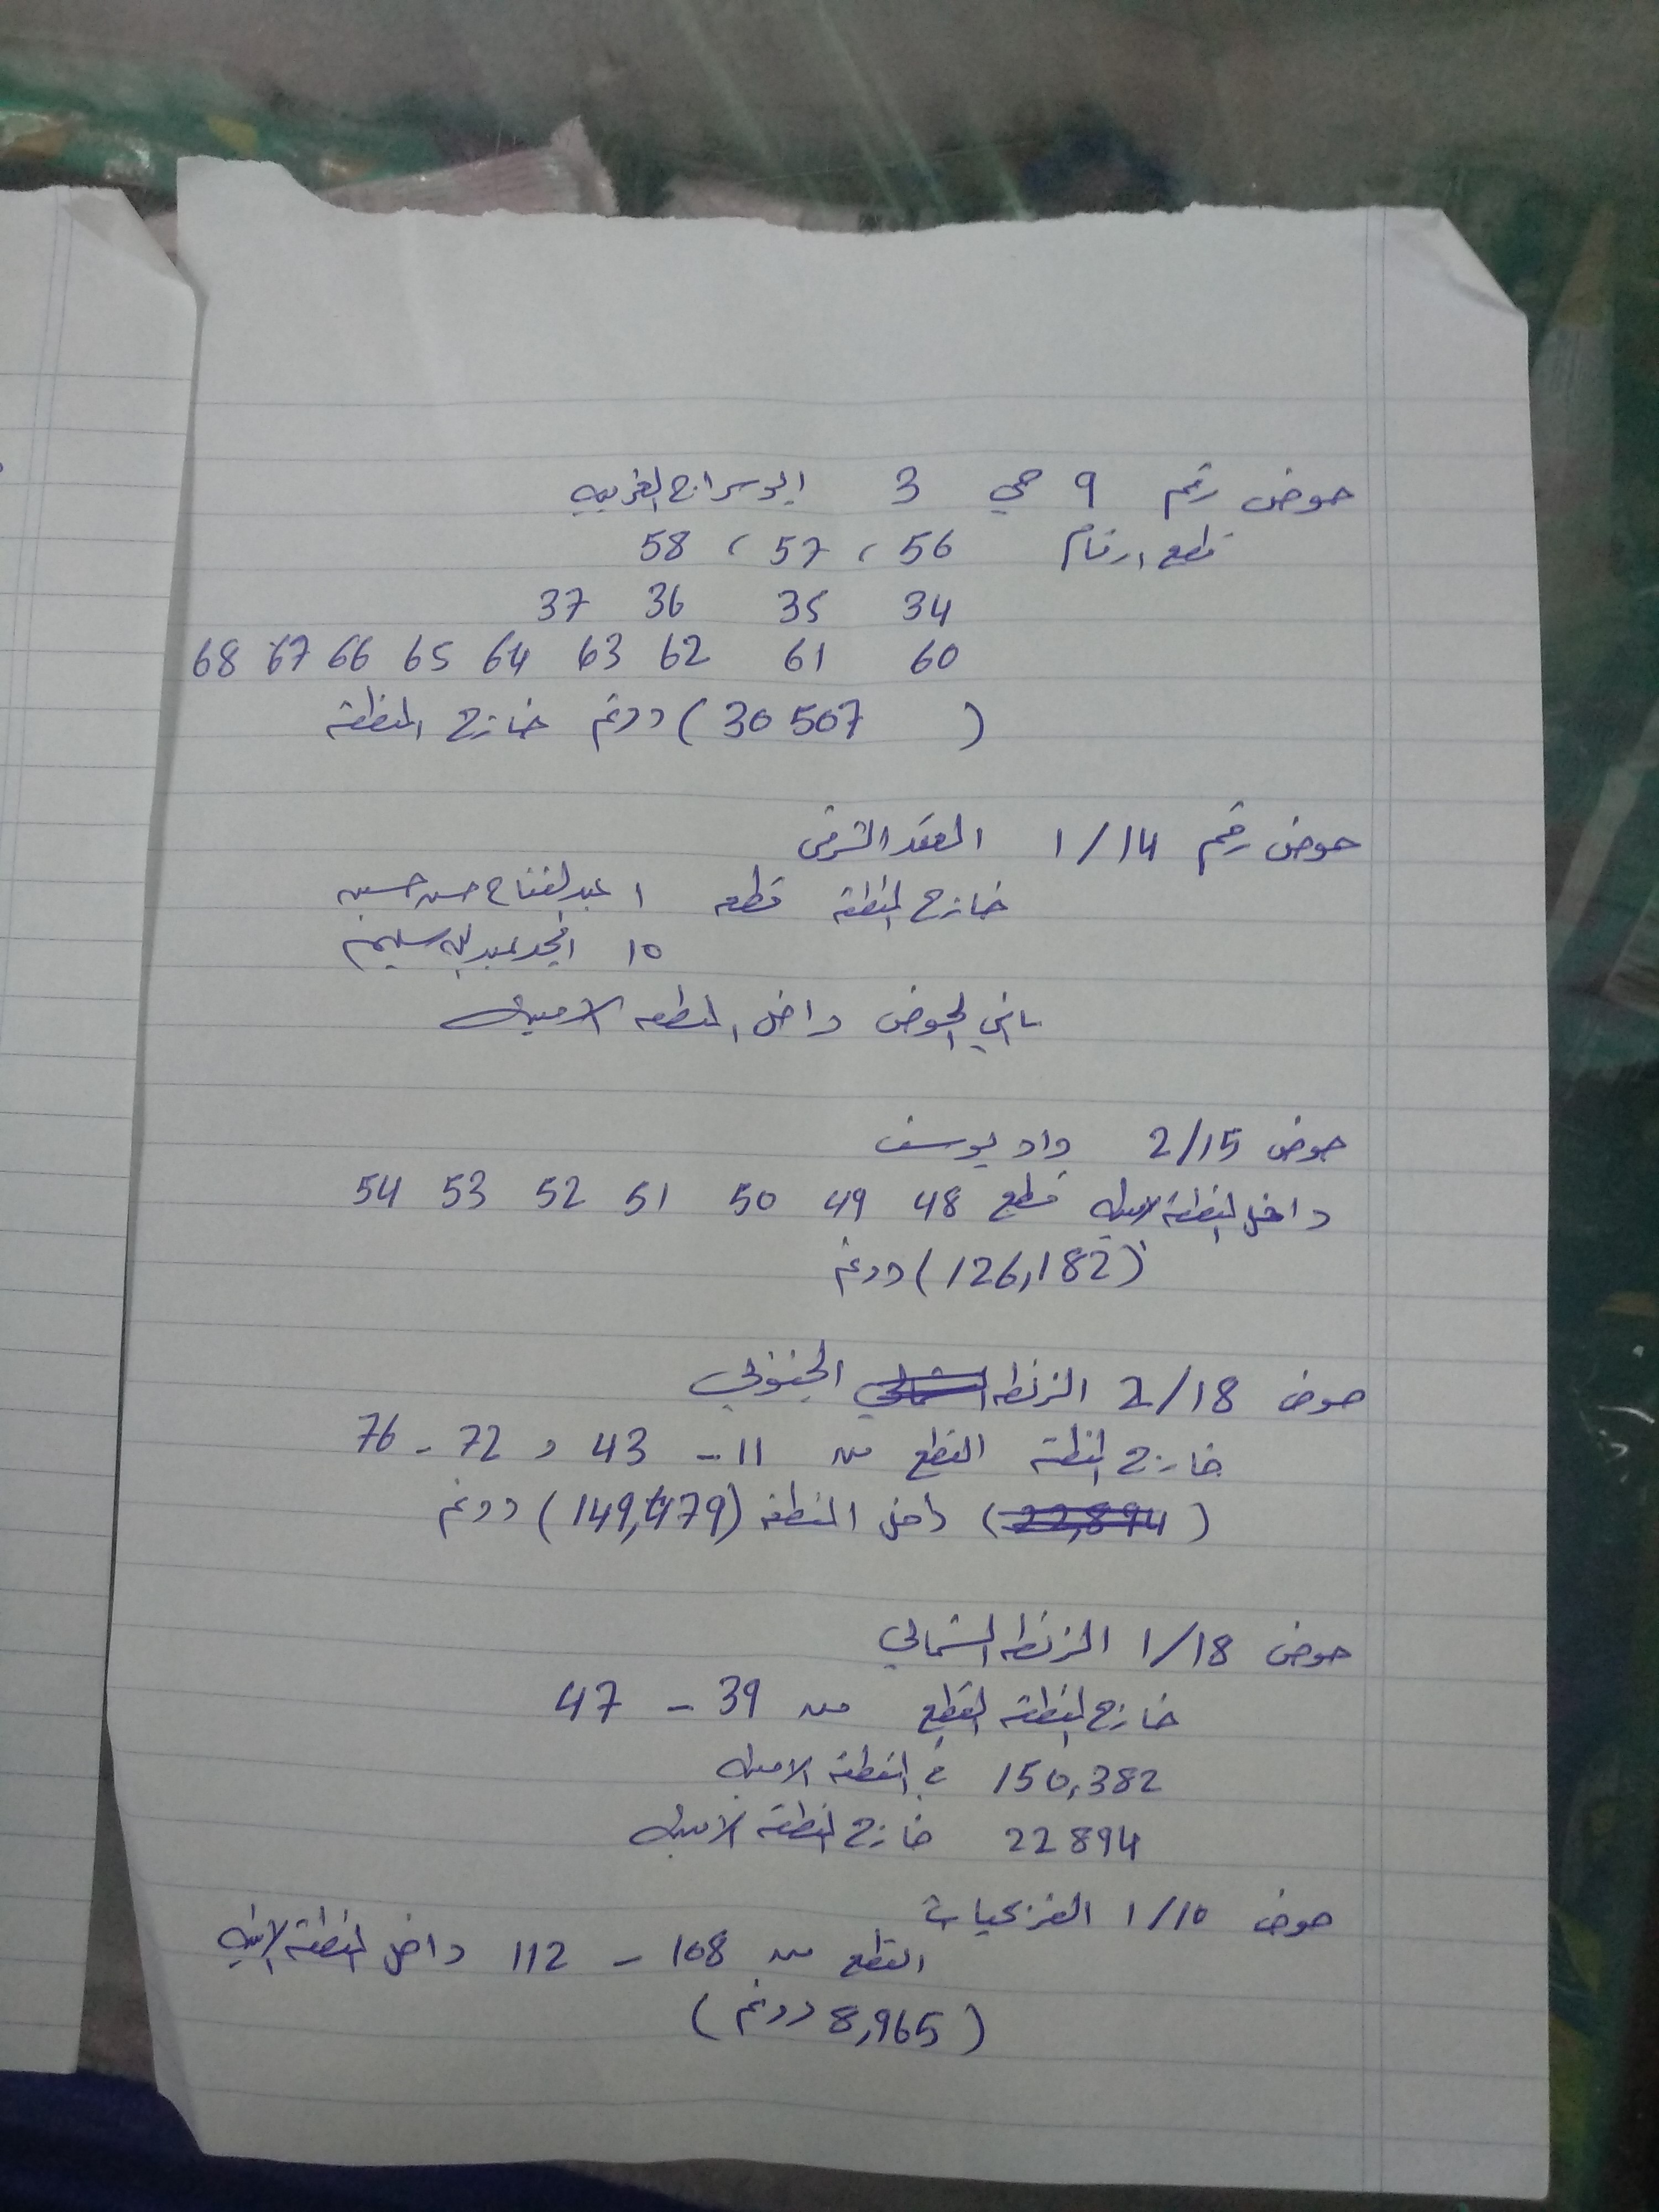 حوض رقم 9 حي 3 ابو سراج الغربيه
قطع ارقام 56 ، 57 ، 58
34 35 36 37
60 61 62 63 64 65 66 67 68
(30507) دونم خارج المنطقة
حوض رقم 1/14 العقد الشرقي
خارج المنطقة قطعه 1 عبدالفتاح حسن حسين
10 امجد عبدالله سليم
باقي الحوض داخل المنطقه الامنيه
حوض 2/15 واد يوسف
داخل المنطقة الامنيه قطع 48 49 50 51 52 53 54
(126,182) دونم
حوض 2/18 الزنطه الجنوبي
خارج المنطقة القطع من 11 - 43 و 72 - 76
(22,894) داخل المنطقه (149,479) دونم
حوض 1/18 الزنطه الشمالي
خارج المنطقة القطع من 39 - 47
150,382 في المنطقة الامنيه
22894 خارج المنطقة الامنيه
حوض 1/10
القطع من 108 - 112 داخل المنطقة الامنيه
(8,965 دونم)